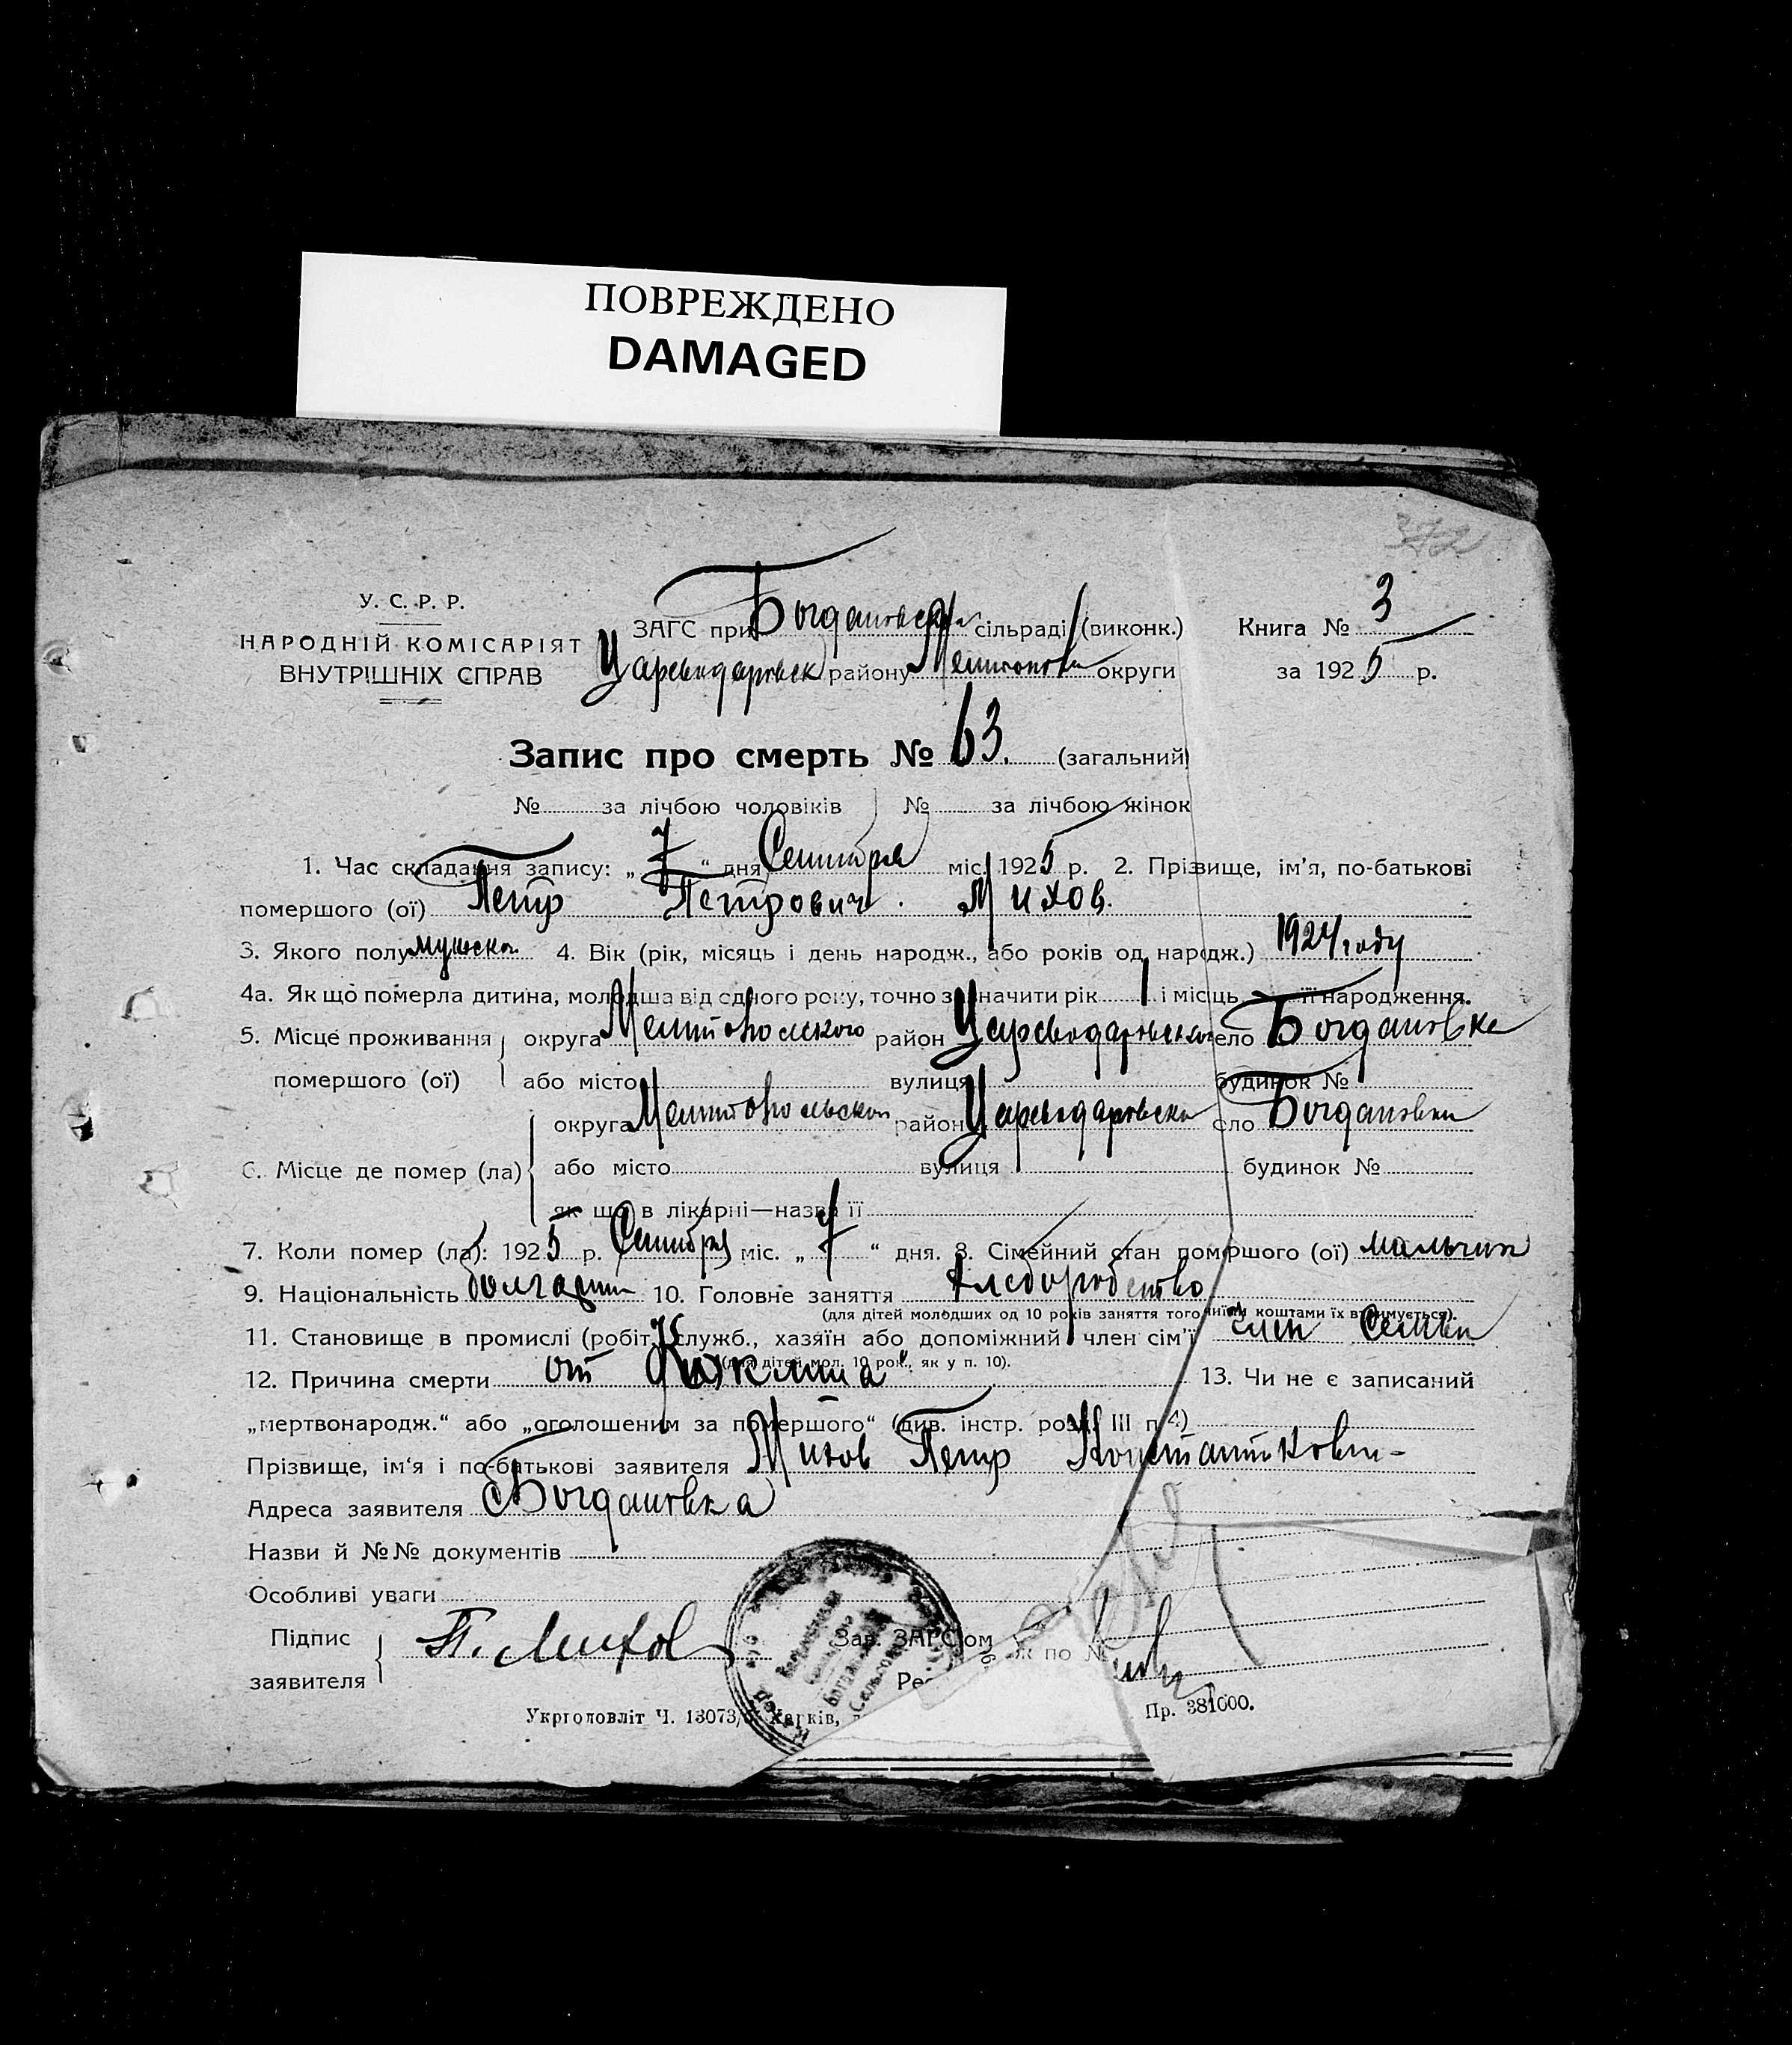 ПОВРЕЖДЕНО
DAMAGED
372
У. С. Р. Р.
НАРОДНІЙ КОМІСАРІЯТ
ВНУТРІШНІХ СПРАВ
ЗАГС при Богдановской сільраді (виконк.)
Цареводаровск району Мелитопольск округи
Книга № 3
за 1925 р.
Запис про смерть № 63. (загальний)
№ за лічбою чоловіків № за лічбою жінок
1. Час складання запису: „ 7 “ дня Сентября міс. 1925 р. 2. Прізвище, ім’я, по-батькові
помершого (ої) Петр Петрович. Михов.
3. Якого полу мужска 4. Вік (рік, місяць і день народж., або років од народж.) 1924 году
4а. Як що померла дитина, молодша від одного року, точно зазначити рік 1 і місяць її народження.
5. Місце проживання округа Мелитопольского район Цареводаровского село Богдановке
помершого (ої) або місто вулиця будинок №
округа Мелитопольской район Цареводаровска село Богдановки
6. Місце де помер (ла) або місто вулиця будинок №
як що в лікарні—назва її
7. Коли помер (ла): 1925 р. Сентября міс. „ 7 “ дня. 8. Сімейний стан помершого (ої) мальчик
9. Національність болгарин 10. Головне заняття хлеборобство
(для дітей молодших од 10 років заняття того чиїми коштами їх втримується).
11. Становище в промислі (робіт., служб., хазяїн або допоміжний член сім’ї член Семьи
(для дітей мол. 10 рок., як у п. 10).
12. Причина смерти от 13. Чи не є записаний
„мертвонародж.“ або „оголошеним за помершого“ (див. інстр. розд. III п. 4)
Прізвище, ім‘я і по-батькові заявителя Михов Петр Константинович-
Адреса заявителя Богдановка
Назви й №№ документів
Особливі уваги
Підпис
заявителя П. Михов
Зав. ЗАГС‘ом
ж по №
Укрголовліт Ч. 13073/ Харків,
Пр. 381000.